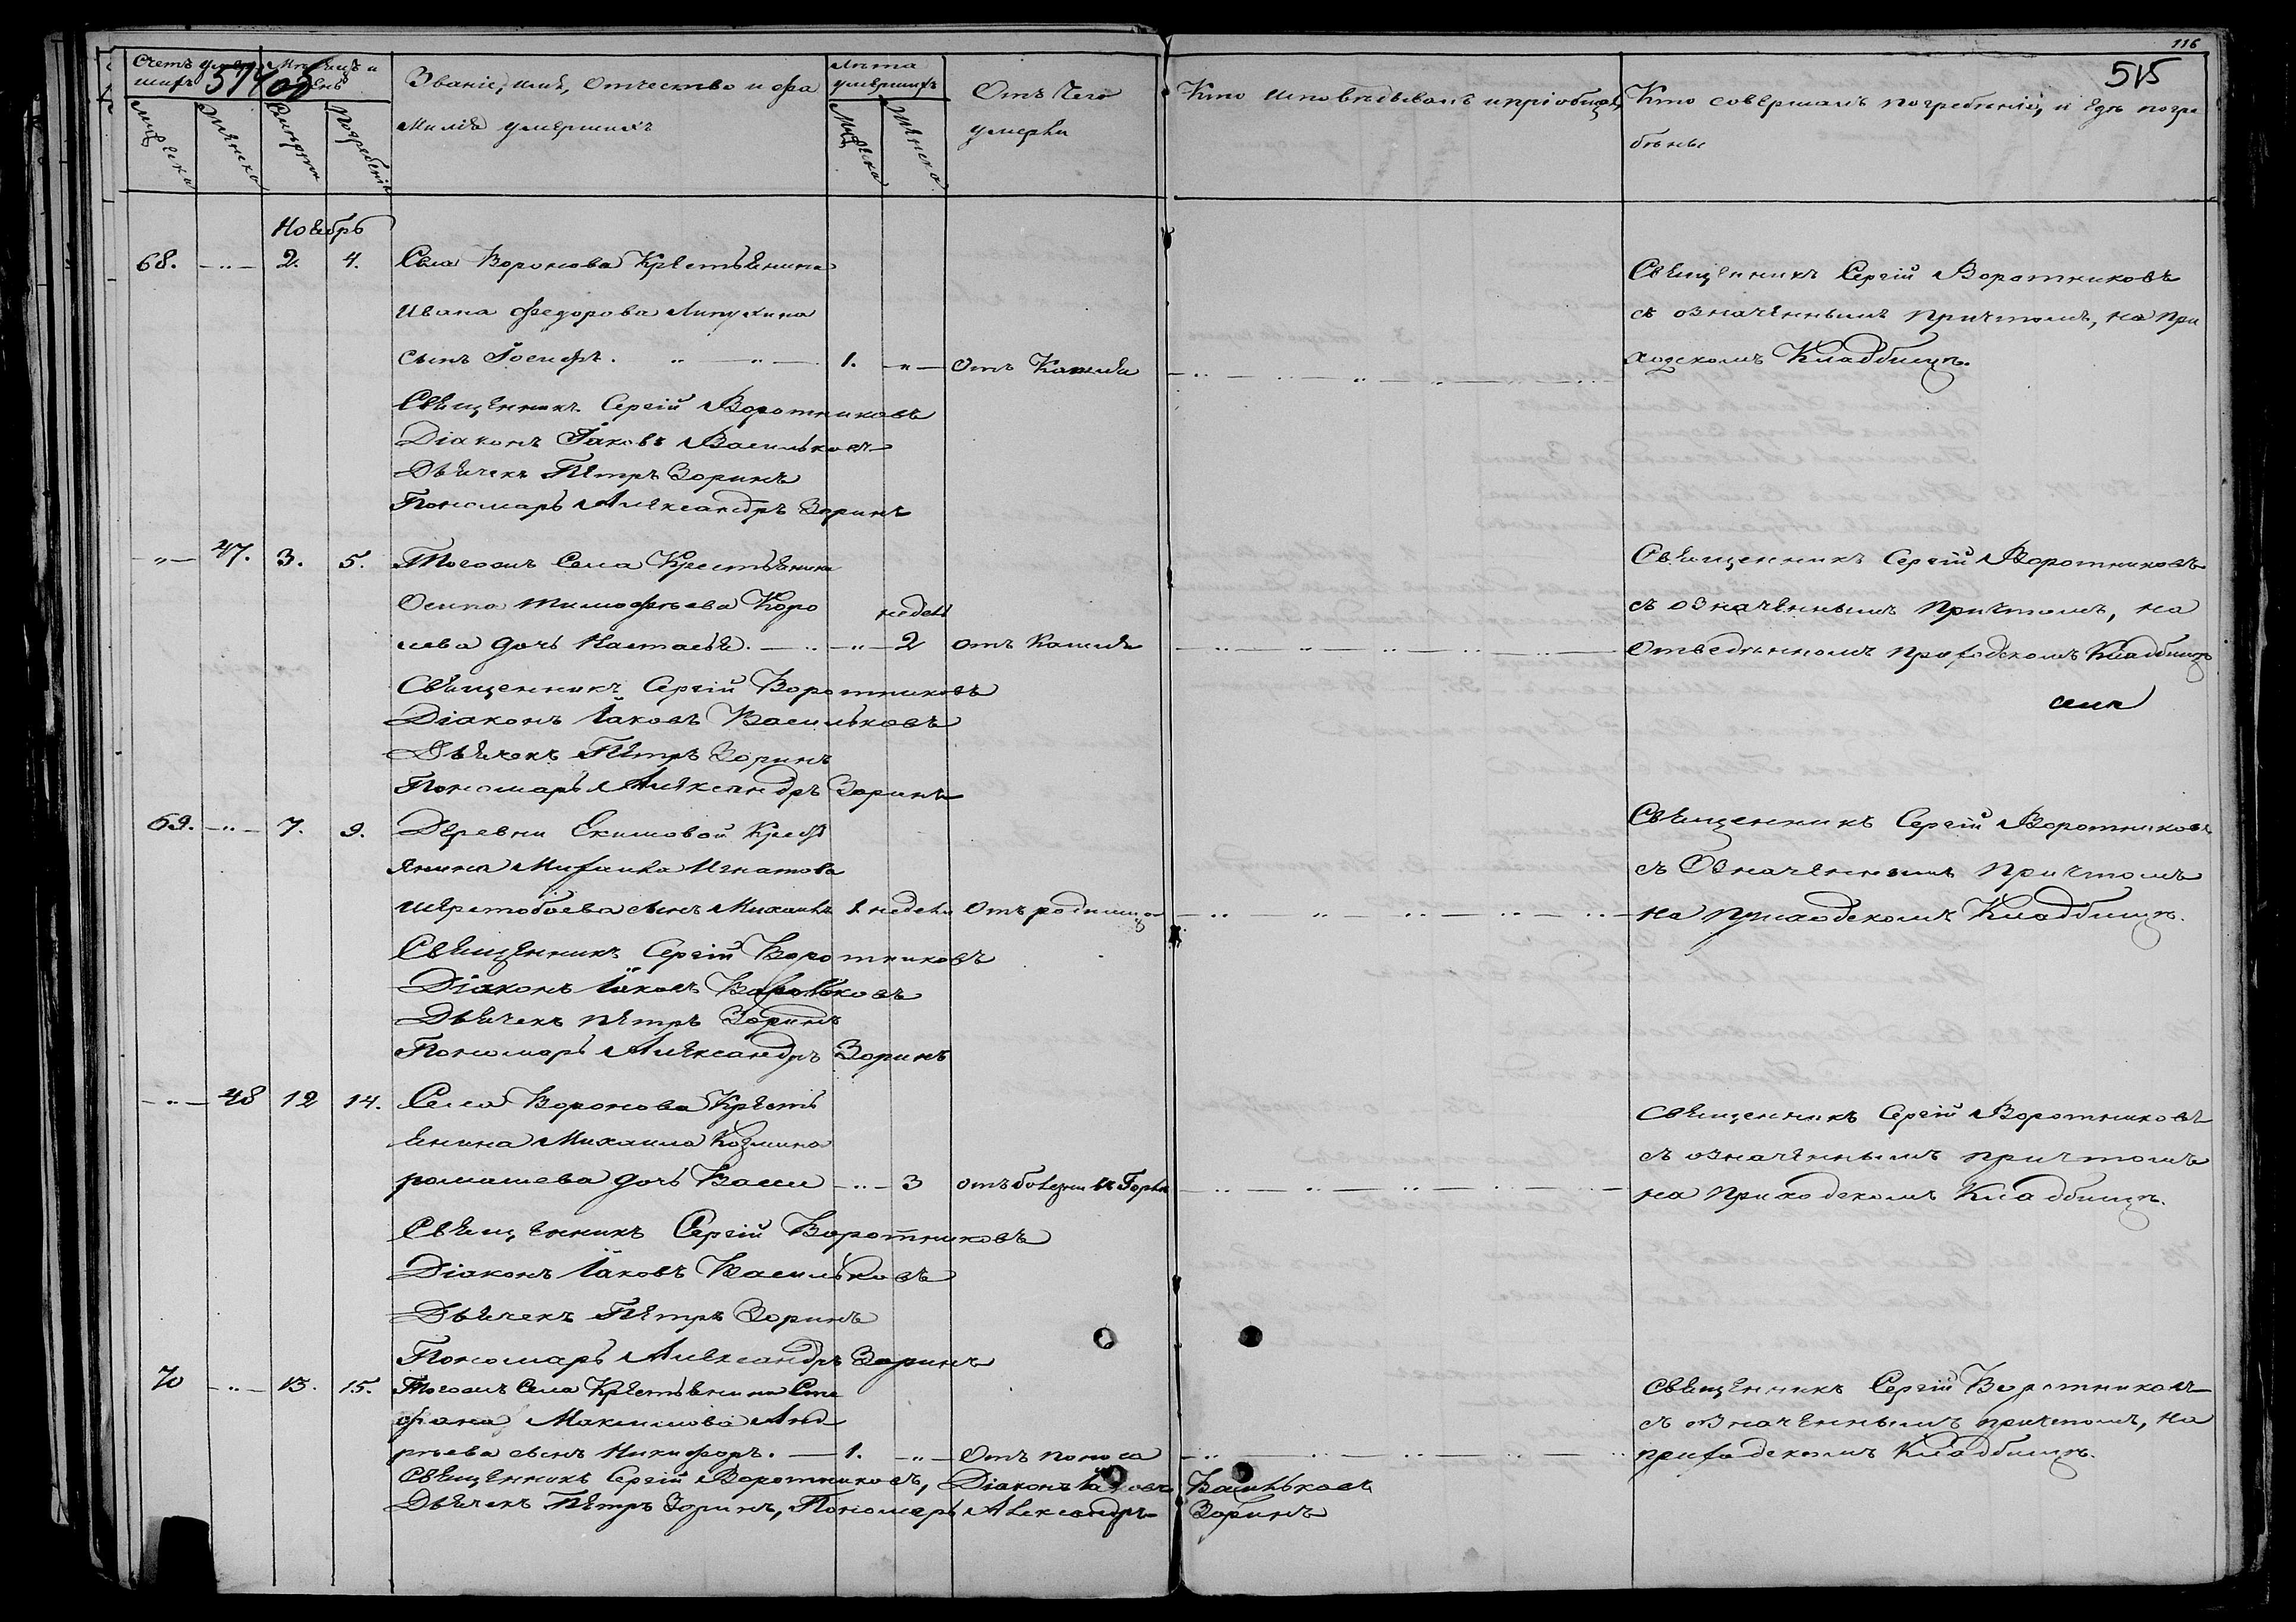 116
515
Счетъ умер
шихъ
Мѣсяцъ и
День
574 об
Званіе, имя, отчество и фа
милія умершихъ
Лѣта
умершихъ
Отъ чего
умерли
Кто исповѣдывалъ и пріобщалъ
Кто совершалъ погребеніе, и гдѣ погре
бены
Мужеска Женска Смерти Погребенія Мужеска Женска
Ноябрь
68. —"— 2. 4. Села Воронова Крестьянина
Ивана Федорова Липухина
сынъ Іосифъ. " — " — 1. —"— Отъ Кашля
Священникъ Сергій Воротниковъ
съ означеннымъ причтомъ, на при
ходскомъ Кладбищѣ.
Священникъ Сергій Воротниковъ
Діаконъ Іаковъ Васильковъ
Дьячекъ Петръ Зоринъ
Пономарь Александръ Зоринъ
—"— 47. 3. 5. Тогожъ Села Крестьянина
Осипа Тимофѣева Коро
лева дочь Настасья. — " — " — недель 2 отъ Кашля
Священникъ Сергій Воротниковъ
съ означеннымъ причтомъ, на
отведенномъ приходскомъ Кладбищѣ
Священникъ Сергій Воротниковъ
Діаконъ Іаковъ Васильковъ
Дьячекъ Петръ Зоринъ
Пономарь Александръ Зоринъ
69. —"— 7. 9. Деревни Екимовой Кресть
янина Михаила Игнатова
сынъ Михаилъ недели Отъ родимца
Священникъ Сергій Воротниковъ
съ означеннымъ причтомъ
на приходскомъ Кладбищѣ.
Священникъ Сергій Воротниковъ
Діаконъ Іаковъ Васильковъ
Дьячекъ Петръ Зоринъ
Пономарь Александръ Зоринъ
—"— 48 12 14. Села Воронова Кресть
янина Михаила Козмина
ромашева дочь —"— 3 отъ болезни въ Горле
Священникъ Сергій Воротниковъ
съ означеннымъ причтомъ
на приходскомъ Кладбищѣ.
Священникъ Сергій Воротниковъ
Діаконъ Іаковъ Васильковъ
Дьячекъ Петръ Зоринъ
Пономарь Александръ Зоринъ
70 —"— 13. 15. Тогожъ Села Крестьянина Сте
фана Максимова Анд
реева сынъ Никифоръ. — 1. —"— Отъ поноса
Священникъ Сергій Воротниковъ
съ означеннымъ причтомъ, на
приходскомъ Кладбищѣ.
Священникъ Сергій Воротниковъ, Діаконъ Іаковъ Васильковъ
Дьячекъ Петръ Зоринъ, Пономарь Александръ Зоринъ